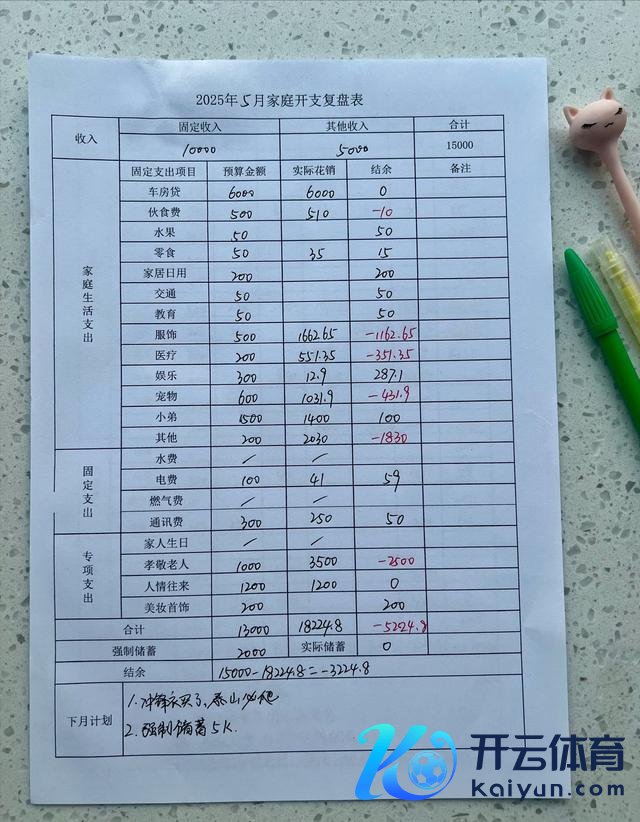 2025年5月家庭开支复盘表
收入 固定收入 其他收入 合计
10000 5000 15000
家庭生活支出 固定支出项目 预算金额 实际花销 结余 备注
车房贷 6000 6000 0
伙食费 500 510 -10
水果 50 50
零食 50 35 15
家居日用 200 200
交通 50 50
教育 50 50
服饰 500 1662.65 -1162.65
医疗 200 551.35 -351.35
娱乐 300 12.9 287.1
宠物 600 1031.9 -431.9
小弟 1500 1400 100
其他 200 2030 -1830
固定支出 水费 / /
电费 100 41 59
燃气费 / /
通讯费 300 250 50
专项支出 家人生日 / /
孝敬老人 1000 3500 -2500
人情往来 1200 1200 0
美妆首饰 200 200
合计 13000 18224.8 -5224.8
强制储蓄 2000 实际储蓄 0
结余 15000-18224.8=-3224.8
下月计划 1.冲锋衣买了,泰山必爬
2.强制储蓄5K.
开云体育
kaiyun.com